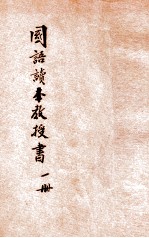 國語讀本教授書一冊